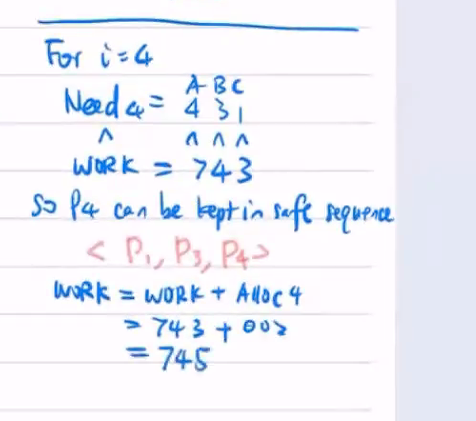 For i=4
A B C
Need 4 = 4 3 1
^ ^ ^ ^
WORK = 743
So P4 can be kept in safe sequence
< P1, P3, P4>
WORK = WORK + Alloc 4
= 743 + 002
= 745